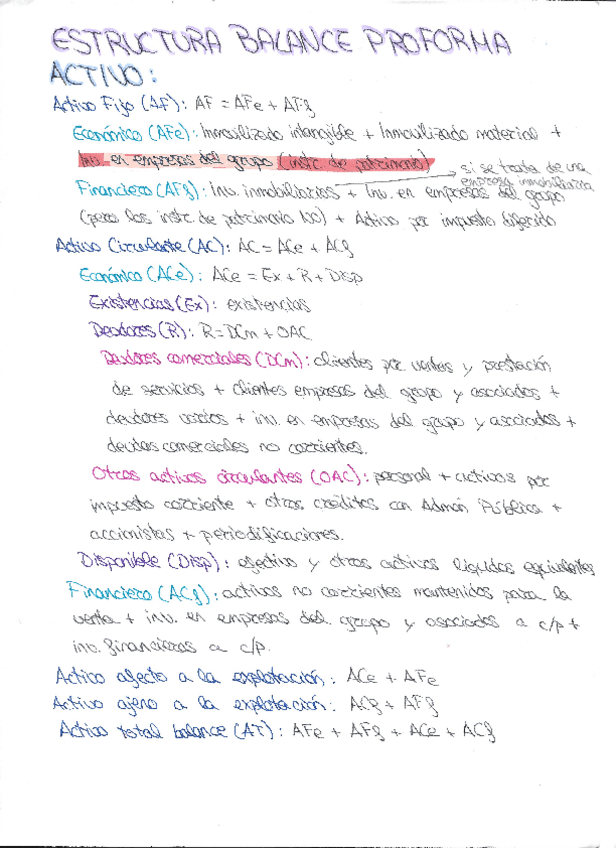 ESTRUCTURA BALANCE PROFORMA
ACTIVO:
Activo Fijo (AF): AF = AFe + AFf
Económico (AFe): Inmovilizado intangible + Inmovilizado material +
Inv. en empresas del grupo (instr. de patrimonio)
si se trata de una
empresa inmobiliaria
Financiero (AFf): Inv. inmobiliarias + Inv. en empresas del grupo
(pero los instr. de patrimonio NO) + Activo por impuesto diferido
Activo Circulante (AC): AC = ACe + ACf
Económico (ACe): ACe = Ex + R + Disp
Existencias (Ex): existencias
Deudores (R): R = DCm + OAC
Deudores comerciales (DCm): clientes por ventas y prestación
de servicios + clientes empresas del grupo y asociados +
deudores varios + inv. en empresas del grupo y asociados +
deudas comerciales no corrientes.
Otros activos circulantes (OAC): personal + activos por
impuesto corriente + otros créditos con Admón Pública +
accionistas + periodificaciones.
Disponible (Disp): efectivo y otros activos líquidos equivalentes
Financiero (ACf): activos no corrientes mantenidos para la
venta + inv. en empresas del grupo y asociados a c/p +
inv. financieras a c/p.
Activo afecto a la explotación: ACe + AFe
Activo ajeno a la explotación: ACf + AFf
Activo total balance (AT): AFe + AFf + ACe + ACf